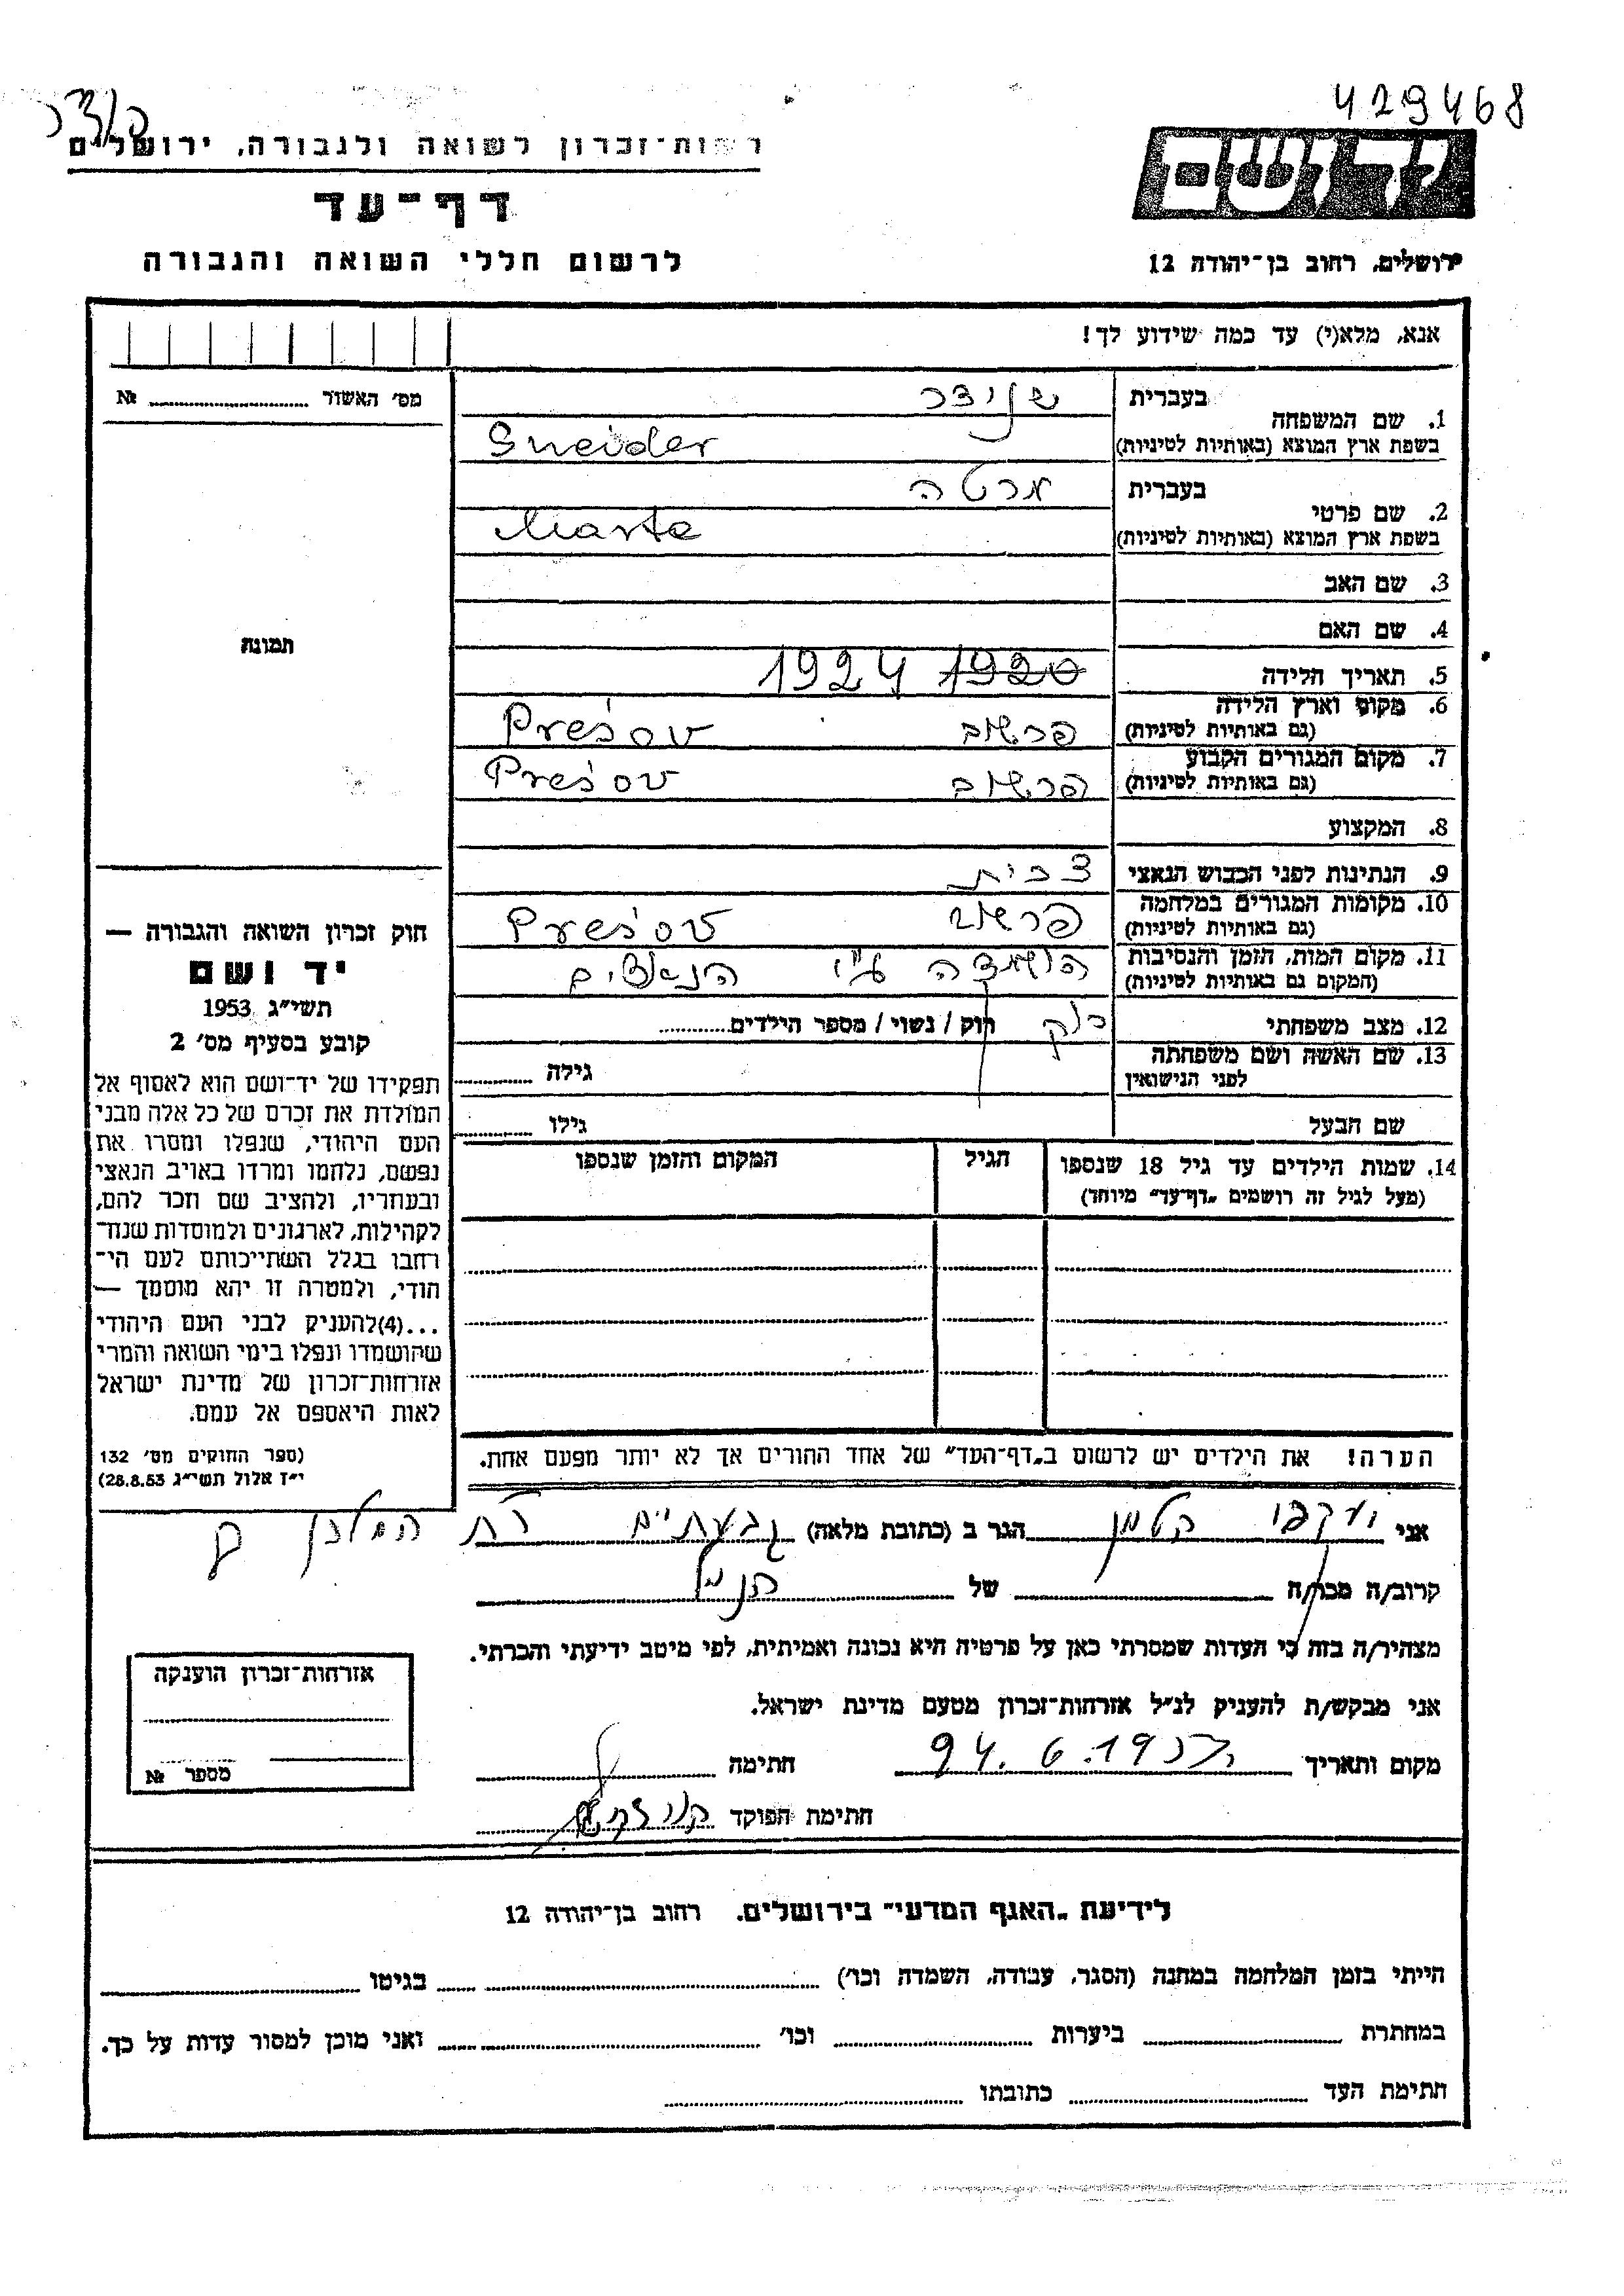 429468
רשות־זכרון לשואה ולגבורה, ירושלים
יד ושם
דף־עד
ירושלים, רחוב בן־יהודה 12
לרשום חללי השואה והגבורה
אנא, מלא(י) עד כמה שידוע לך!
מס׳ האשור № 
בעברית שניידר
1. שם המשפחה
בשפת ארץ המוצא (באותיות לטיניות) Sneider
בעברית מרטה
2. שם פרטי
בשפת ארץ המוצא (באותיות לטיניות) Marta
3. שם האב
4. שם האם
תמונה
5. תאריך הלידה 1920 1924
6. מקום וארץ הלידה
(גם באותיות לטיניות) פרשוב Prešov
7. מקום המגורים הקבוע
(גם באותיות לטיניות) פרשוב Prešov
8. המקצוע
9. הנתינות לפני הכבוש הנאצי צ׳כית
10. מקומות המגורים במלחמה
(גם באותיות לטיניות) פרשוב Prešov
11. מקום המות, הזמן והנסיבות
(המקום גם באותיות לטיניות) הושמדה ע״י הנאצים
12. מצב משפחתי רווק רווק / נשוי / מספר הילדים
13. שם האשה ושם משפחתה
לפני הנישואין
גילה
שם הבעל
גילו
חוק זכרון השואה והגבורה —
יד ושם
תשי״ג 1953
קובע בסעיף מס׳ 2
תפקידו של יד־ושם הוא לאסוף אל
המולדת את זכרם של כל אלה מבני
העם היהודי, שנפלו ומסרו את
נפשם, נלחמו ומרדו באויב הנאצי
ובעוזריו, ולהציב שם וזכר להם,
לקהילות, לארגונים ולמוסדות שנח־
רבו בגלל השתייכותם לעם הי־
הודי, ולמטרה זו יהא מוסמך —
...(4)להעניק לבני העם היהודי
שהושמדו ונפלו בימי השואה והמרי
אזרחות־זכרון של מדינת ישראל
לאות היאספם אל עמם.
(ספר החוקים מס׳ 132
י״ז אלול תשי״ג 28.8.53)
14. שמות הילדים עד גיל 18 שנספו
(מעל לגיל זה רושמים „דף־עד״ מיוחד)
הגיל
המקום והזמן שנספו
הערה! את הילדים יש לרשום ב„דף־העד״ של אחד ההורים אך לא יותר מפעם אחת.
אני קלמן הגר ב (כתובת מלאה) גבעתיים
קרוב/ה מכר/ה של הנ״ל
מצהיר/ה בזה כי העדות שמסרתי כאן על פרטיה היא נכונה ואמיתית, לפי מיטב ידיעתי והכרתי.
אני מבקש/ת להעניק לנ״ל אזרחות־זכרון מטעם מדינת ישראל.
מקום ותאריך
חתימה
חתימת הפוקד
אזרחות־זכרון הוענקה
מספר №
לידיעת „האגף המדעי״ בירושלים. רחוב בן־יהודה 12
הייתי בזמן המלחמה במחנה (הסגר, עבודה, השמדה וכו׳) בגיטו
במחתרת ביערות וכו׳ ואני מוכן למסור עדות על כך.
חתימת העד כתובתו